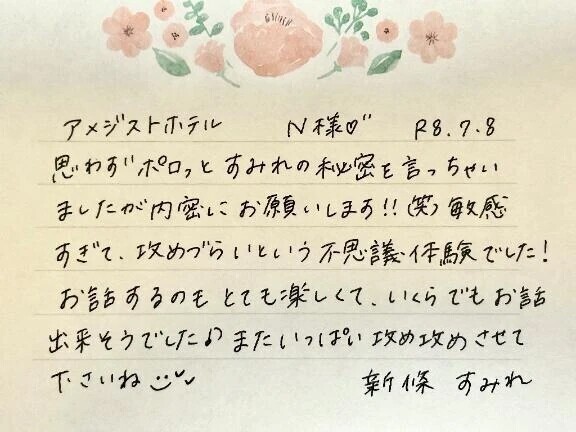 アメジストホテル N様♡" R8.7.8
思わずポロっとすみれの秘密を言っちゃい
ましたが内密にお願いします!!(笑)敏感
すぎて、攻めづらいという不思議体験でした!
お話するのもとても楽しくて、いくらでもお話
出来そうでした♪またいっぱい攻め攻めさせて
下さいね
新條 すみれ